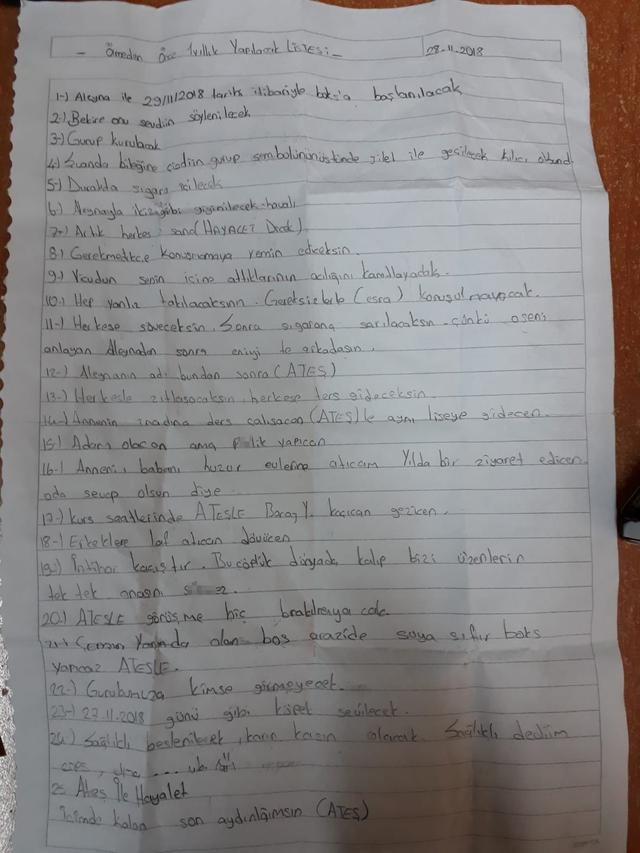 - Ölmeden Önce 1 yıllık Yapılacak LİSTESİ - 28-11-2018
1-) Aleyna ile 29/11/2018 tarihi itibariyle boks'a başlanılacak
2-) Bekire onu sevdiin söylenilecek
3-) Gurup kurulacak
4-) Suanda bileğine cizdiin gurup sembolününüstünde jilet ile geçilecek
5-) Duraklda sigara icilecek
6-) Aleynayla ikizgibi giyinilecek-havalı
7-) Artık herkes sana (HAYALET Dicek)
8-) Gerekmedikce konusmamaya yemin ediceksin.
9-) Vücudun senin içine attıklarının acılığını kanıtlayacak.
10-) Hep yanlız takılacaksın. Gereksizlerle (esra) konuşulmayacak.
11-) Herkese söveceksin. Sonra sigarana sarılacaksın-çünkü oseni
anlayan Aleynadan sonra eniyi tc arkadasın.
12-) Aleynanın adı bundan sonra (ATEŞ)
13-) Herkesle zıtlasacaksın herkese ters gideceksin.
14-) Annenin inadına ders calısacan (ATEŞ)le aynı liseye gidecen.
15-) Adam olacan ama p lik yapıcan
16-) Anneni, babanı huzur evlerine atıcam Yılda bir ziyaret edicen
oda sevap olsun diye
17-) Kurs saatlerinde ATEŞLE kaçıcan gezicen.
18-) Erkeklere laf atıcan dövücen
19-) İntihar kaçıştır. Bu dünyada kalıp bizi üzenlerin
tek tek anasını
20-) ATEŞLE görüşme hiç bırakılmıya cak
21-) Yanında olan boş arazide suya sıfır boks
yapıcaz ATEŞLE.
22-) Gurubumuza kimse girmeyecek.
23-) 27.11.2018 günü gibi küfet sevilecek.
24-) Sağlıklı beslenilecek, karın kasın olacak. Sağlıklı dediim
... vb
25 Ateş İle Hayalet
İcimde kalan son aydınlığımsın (ATEŞ)